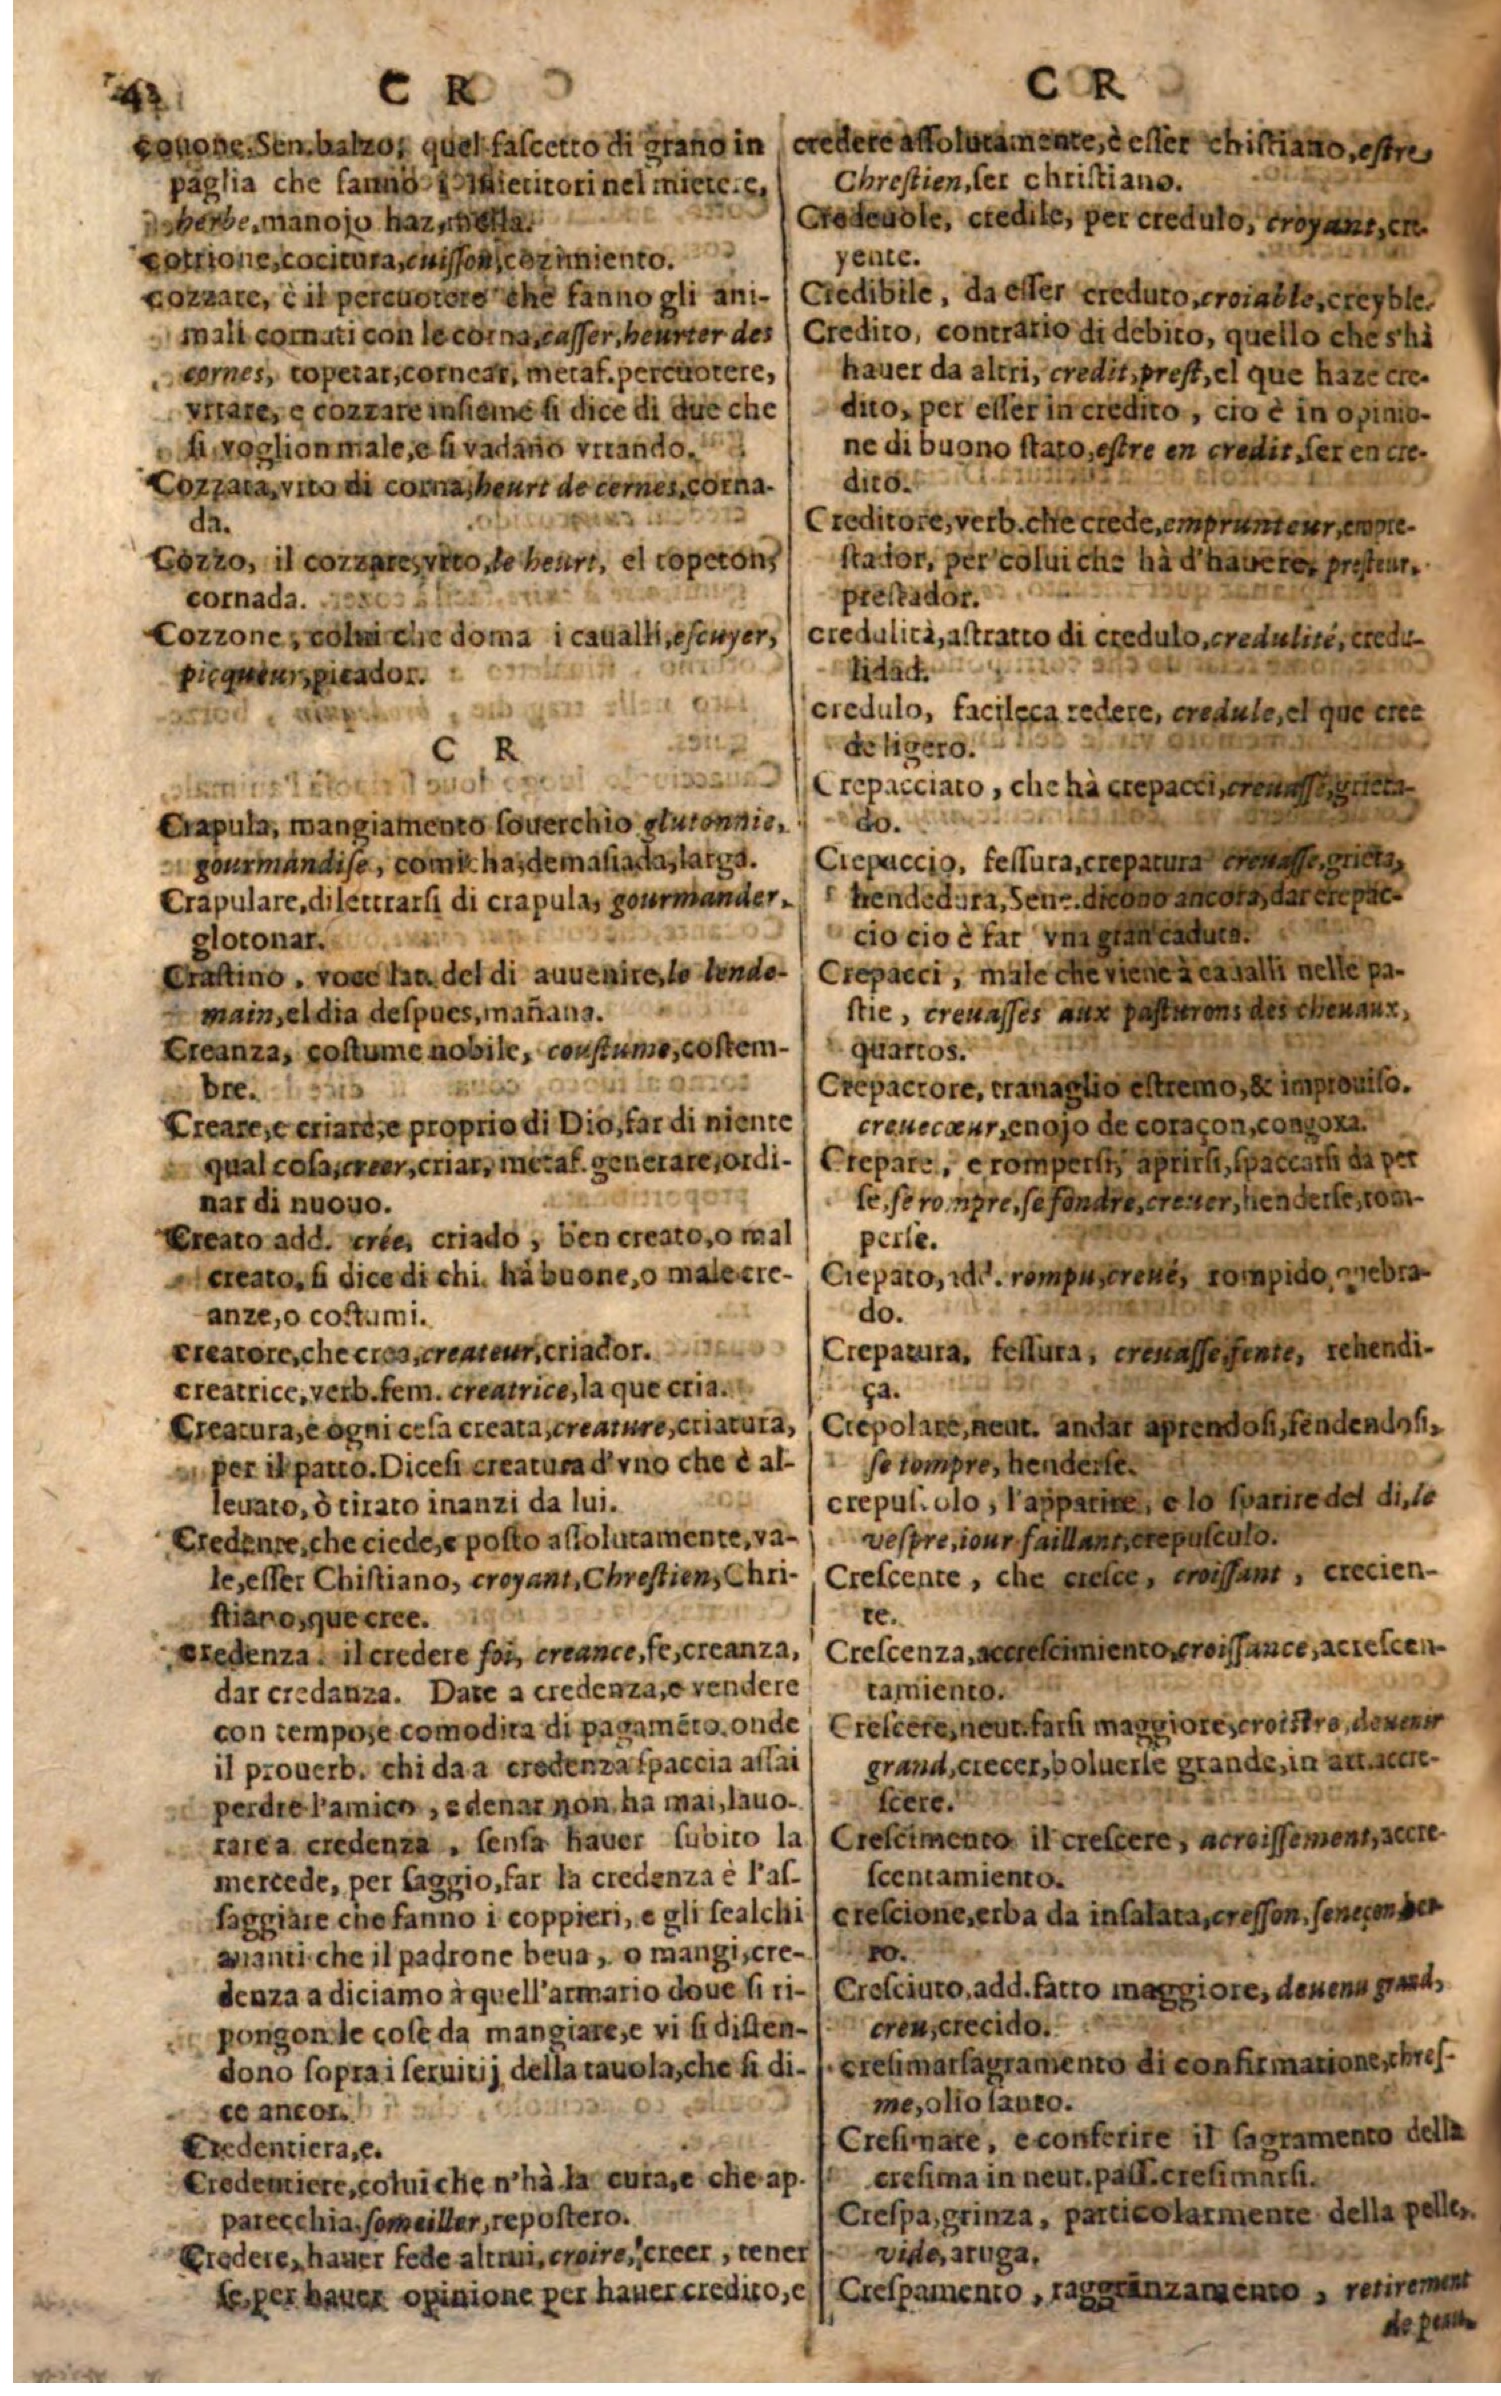 42
C R
couone. Sen. balzo, quel fascetto di grano in
paglia che fanno i mietitori nel miete. e,
herbe, manojo haz,
cottione, cocitura, cuisson, cozimiento.
cozzare, è il percuotere che fanno gli ani-
mali cornuti con le corna, casser, heurter des
cornes, topetar, cornear, metaf. percuotere,
vrtare, e cozzare insieme si dice di due che
si voglion male, e si vadano vrtando.
Cozzata, vrto di corna, heurt de cernes, corna-
da.
Cozzo, il cozzare, vrto, le heurt, el topeton,
cornada.
Cozzone, colui che doma i caualli, escuyer,
picqueur, picador.
C R
Crapula, mangiamento souerchio glutonnie,
gourmandise, comicha, demasiada, larga.
Crapulare, dilettrarsi di crapula, gourmander,
glotonar.
Crastino, voce lat. del di auuenire, le lende-
main, el dia despues, mañana.
Creanza, costume nobile, coustume, costem-
bre.
Creare, e criare, e proprio di Dio, far di niente
qual cosa, creer, criar, metaf. generare, ordi-
nar di nuouo.
Creato add. crée, criado, ben creato, o mal
creato, si dice di chi hà buone, o male cre-
anze, o costumi.
creatore, che crea, createur, criador.
creatrice, verb. fem. creatrice, la que cria.
Creatura, e ogni cesa creata, creature, criatura,
per il patto. Dicesi creatura d'vno che è al-
leuato, ò tirato inanzi da lui.
Credente, che ciede, e posto assolutamente, va-
le, esser Chistiano, croyant, Chrestien, Chri-
stiano, que cree.
credenza. il credere foi, creance, fe, creanza,
dar credanza. Dare a credenza, e vendere
con tempo, e comodita di pagamẽto. onde
il prouerb. chi da a credenza spaccia assai
perdre l'amico, e denar non ha mai, lauo-
rare a credenza, sensa hauer subito la
mercede, per saggio, far la credenza è l'as-
saggiare che fanno i coppieri, e gli scalchi
auanti che il padrone beua, o mangi, cre-
denza a diciamo à quell'armario doue si ri-
pongon le cose da mangiare, e vi si disten-
dono sopra i seruitij della tauola, che si di-
ce ancor.
Credentiera, e.
Credentiere, colui che n'hà la cura, e che ap-
parecchia. someiller, repostero.
Credere, hauer fede altrui, croire, creer, tener
se, per hauer opinione per hauer credito, e
C R
credere assolutamente, è esser chistiano, estre
Chrestien, ser christiano.
Credeuole, credile, per credulo, croyant, cre-
yente.
Credibile, da esser creduto, croiable, creyble.
Credito, contrario di debito, quello che s'hà
hauer da altri, credit, prest, el que haze cre-
dito, per esser in credito, cio è in opinio-
ne di buono stato, estre en credit, ser en cre-
dito.
Creditore, verb. che crede, emprunteur, empre-
stador, per colui che hà d'hauere, presteur,
prestador.
credulità, astratto di credulo, credulité, credu-
lidad.
credulo, facileca redere, credule, el que cree
de ligero.
Crepacciato, che hà crepacci, creuassé, grieta-
do.
Crepaccio, fessura, crepatura creuasse, grieta,
hendedura, Sene. dicono ancora, dar crepac-
cio cio è far vna gran caduta.
Crepacci, male che viene à caualli nelle pa-
stie, creuasses aux pasturons des cheuaux,
quartos.
Crepactore, trauaglio estremo, & improuiso.
creuecœur, enojo de coraçon, congoxa.
Crepare, e rompersi, aprirsi, spaccarsi da per
se, se rompre, se fendre, creuer, henderse, rom-
perse.
Crepato, add. rompu, creué, rompido, quebra-
do.
Crepatura, fessura, creuasse, fente, rehendi-
ça.
Crepolare, neut. andar aprendosi, fendendosi,
se tompre, henderse.
crepusculo, l'apparire, e lo sparire del di, le
vespre, iour faillant, crepusculo.
Crescente, che cresce, croissant, crecien-
te.
Crescenza, accrescimiento, croissance, acrescen-
tamiento.
Crescere, neut. farsi maggiore, croistre, deuenir
grand, crecer, boluerse grande, in att. accre-
scere.
Crescimento il crescere, acroissement, accre-
scentamiento.
crescione, erba da insalata, cresson, seneçon ber-
ro.
Cresciuto, add. fatto maggiore, deuenu grand,
creu, crecido.
cresimarsagramento di confirmatione, chres-
me, olio santo.
Cresimare, e conferire il sagramento della
cresima in neut. pass. cresimarsi.
Crespa, grinza, particolarmente della pelle,
vide, aruga.
Crespamento, raggrinzamento, retirement
de peau.